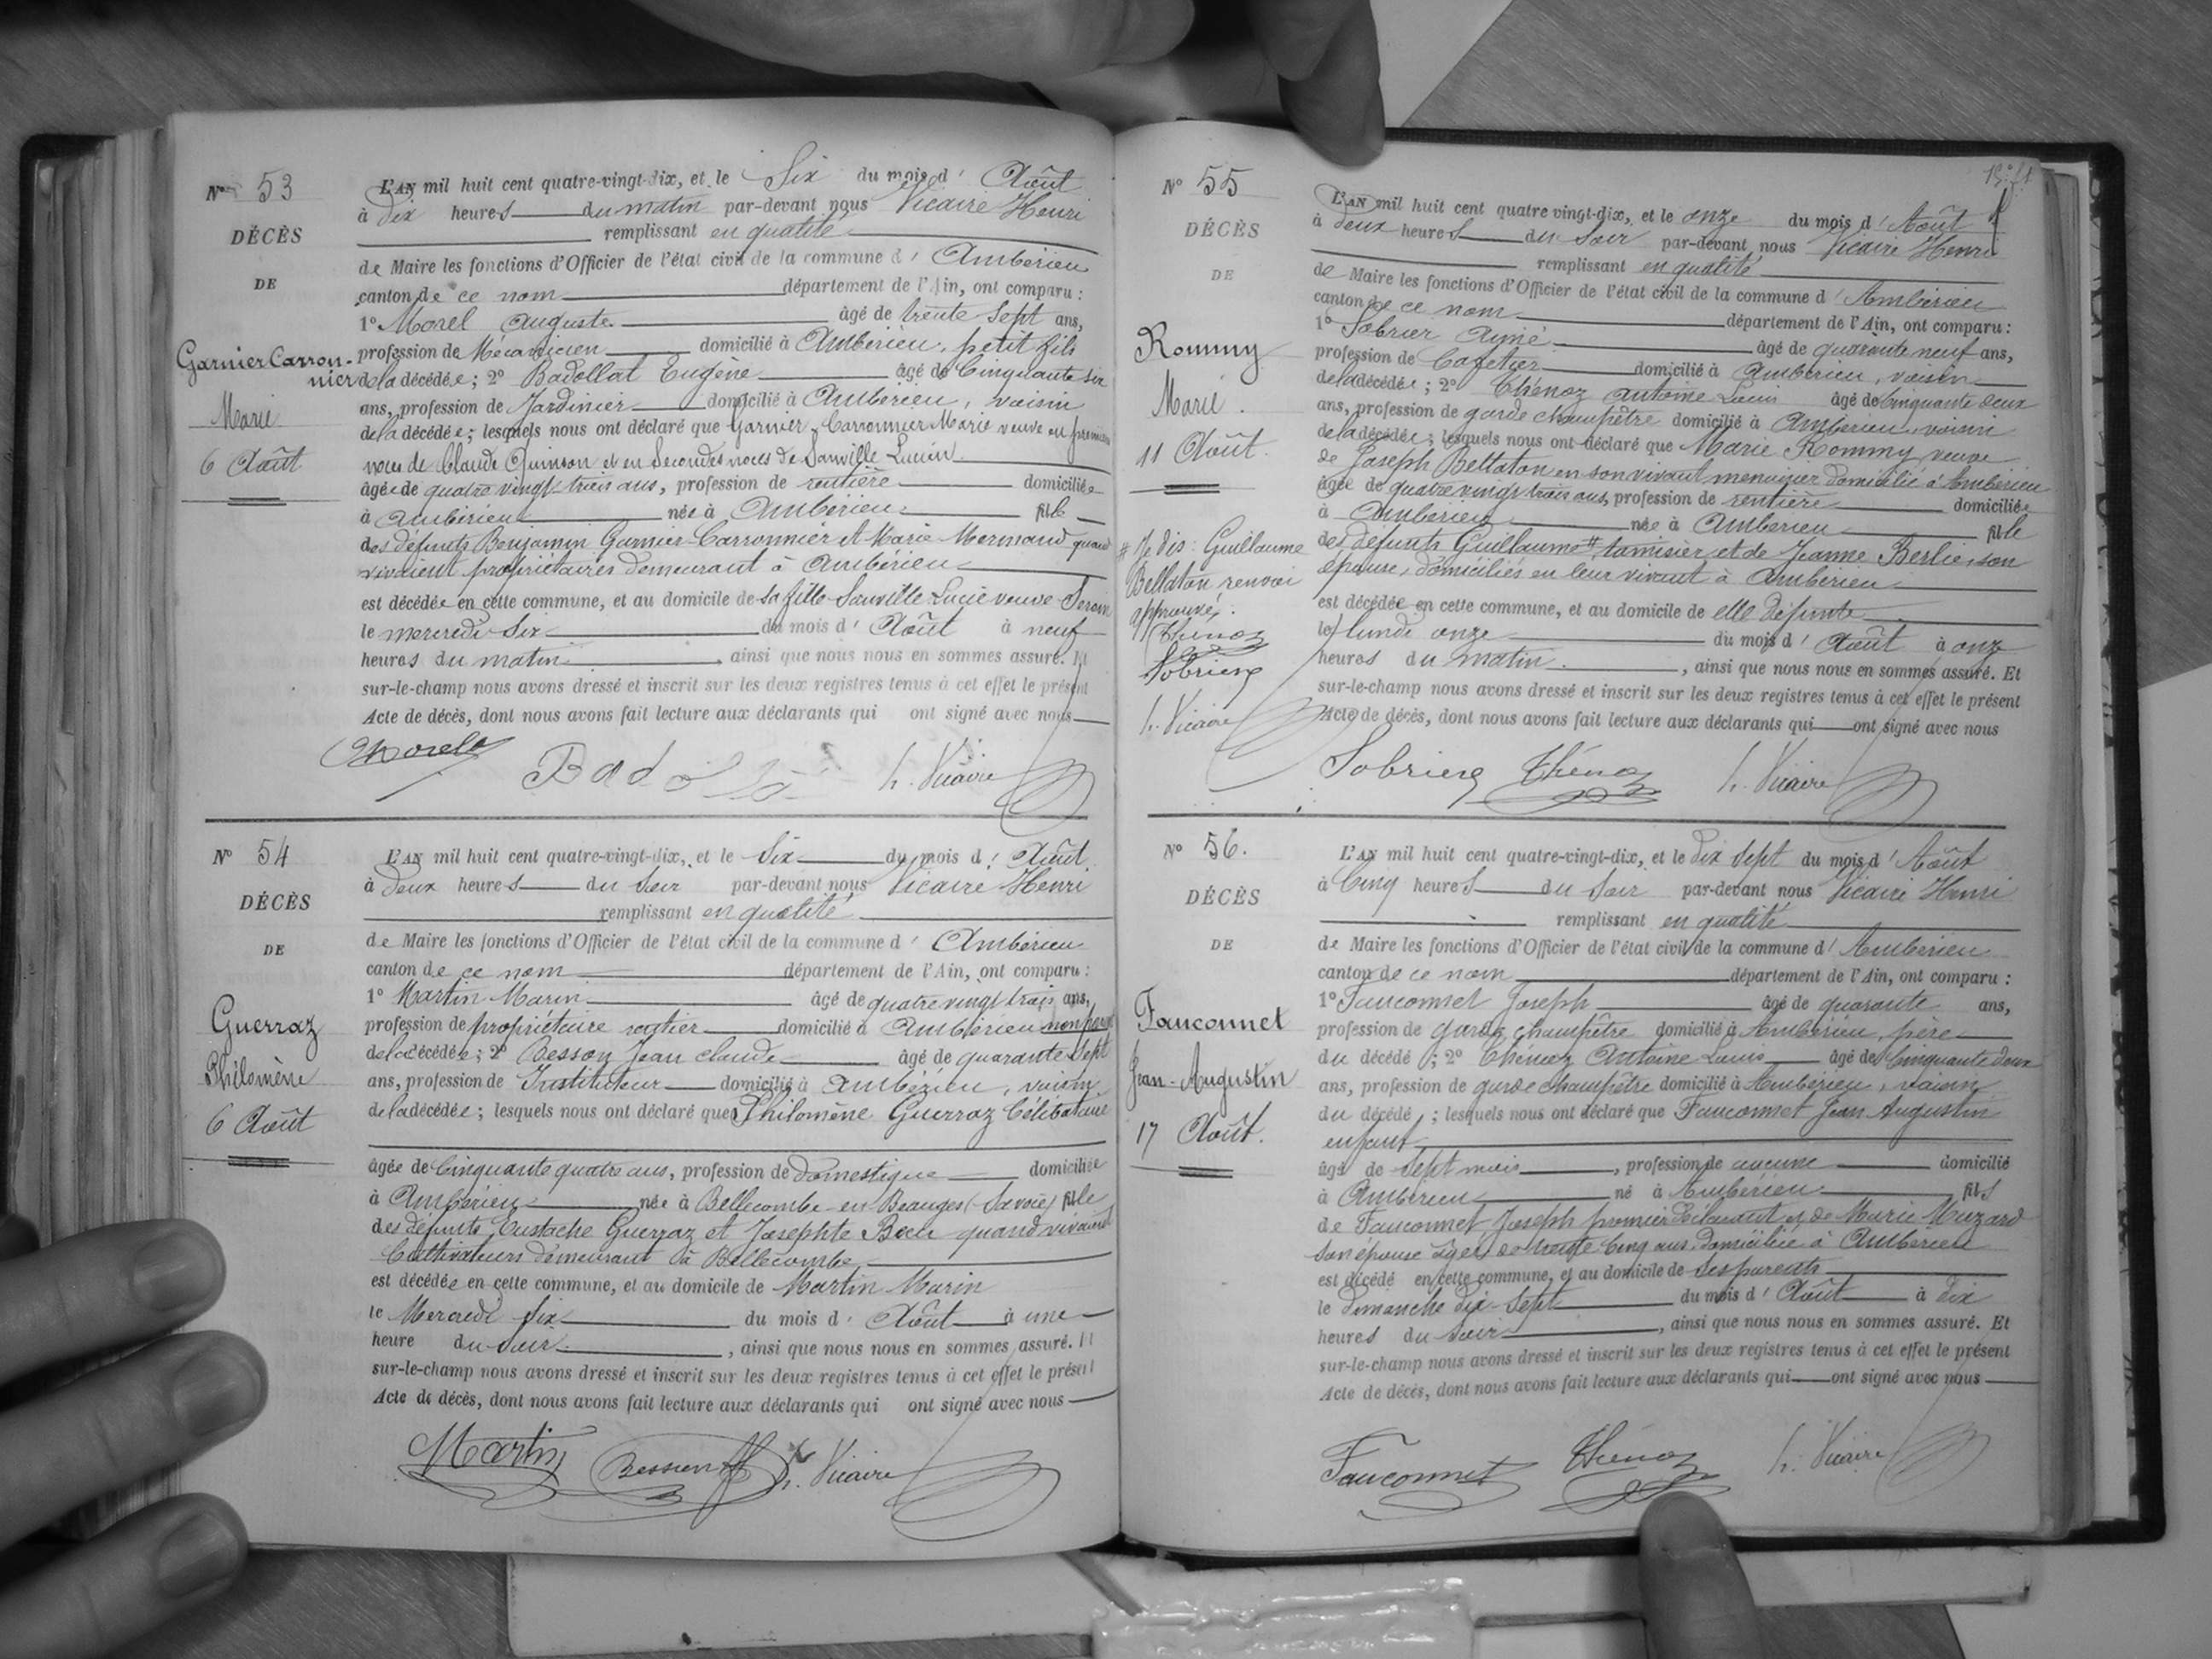 N° 53
DÉCÈS
DE
Garnier Carron-
nier
Marie
6 Août
L'AN mil huit cent quatre-vingt-dix, et le Six du mois d' Août
à Dix heures du matin par-devant nous Vicaire Henri
remplissant en qualité
de Maire les fonctions d'Officier de l'état civil de la commune d' Ambérieu
canton de ce nom département de l'Ain, ont comparu :
1° Morel Auguste âgé de trente sept ans,
profession de Mécanicien domicilié à Ambérieu, petit fils
de la décédée ; 2° Badollat Eugène âgé de Cinquante six
ans, profession de Jardinier domicilié à Ambérieu, voisin
de la décédée ; lesquels nous ont déclaré que Garnier Carronnier Marie veuve en premières
noces de Claude Quinson et en Secondes noces de Sauville Lucien
âgée de quatre vingt trois ans, profession de rentière domiciliée
à Ambérieu née à Ambérieu fille
des défunts Benjamin Garnier-Carronnier et Marie Mermand quand
vivaient propriétaires demeurant à Ambérieu
est décédée en cette commune, et au domicile de sa fille Sauville Lucie veuve
le mercredi Six du mois d' Août à neuf
heures du matin, ainsi que nous nous en sommes assuré. Et
sur-le-champ nous avons dressé et inscrit sur les deux registres tenus à cet effet le présent
Acte de décès, dont nous avons fait lecture aux déclarants qui ont signé avec nous
Morel h. Vicaire
N° 54
DÉCÈS
DE
Guerraz
Philomène
6 Août
L'AN mil huit cent quatre-vingt-dix, et le Six du mois d' Août
à Deux heures du Soir par-devant nous Vicaire Henri
remplissant en qualité
de Maire les fonctions d'Officier de l'état civil de la commune d' Ambérieu
canton de ce nom département de l'Ain, ont comparu :
1° Martin Marin âgé de quatre vingt trois ans,
profession de propriétaire rentier domicilié à Ambérieu non parent
de la décédée ; 2° Besson Jean Claude âgé de quarante Sept
ans, profession de Instituteur domicilié à Ambérieu, voisin
de la décédée ; lesquels nous ont déclaré que Philomène Guerraz Célibataire
âgée de Cinquante quatre ans, profession de Domestique domiciliée
à Ambérieu née à Bellecombe-en-Beauges (Savoie) fille
des défunts Eustache Guerraz et Josephte quand vivaient
Cultivateurs demeurant à Bellecombe
est décédée en cette commune, et au domicile de Martin Marin
le Mercredi Six du mois d' Août à une
heure du Soir, ainsi que nous nous en sommes assuré. Et
sur-le-champ nous avons dressé et inscrit sur les deux registres tenus à cet effet le présent
Acte de décès, dont nous avons fait lecture aux déclarants qui ont signé avec nous
Martin Besson h. Vicaire
N° 55
DÉCÈS
DE
Rommy
Marie.
11 Août.
# Je dis : Guillaume
Bellaton renvoi
approuvé.
Thénoz
Sobrier
h. Vicaire
L'AN mil huit cent quatre vingt-dix, et le onze du mois d' Août
à Deux heures du Soir par-devant nous Vicaire Henri
remplissant en qualité
de Maire les fonctions d'Officier de l'état civil de la commune d' Ambérieu
canton de ce nom département de l'Ain, ont comparu :
1° Sobrier Aimé âgé de quarante neuf ans,
profession de Cafetier domicilié à Ambérieu, voisin
de la décédée ; 2° Thénoz Antoine Louis âgé de Cinquante deux
ans, profession de garde champêtre domicilié à Ambérieu, voisin
de la décédée ; lesquels nous ont déclaré que Marie Rommy veuve
de Joseph Bellaton en son vivant menuisier domicilié à Ambérieu
âgée de quatre vingt trois ans, profession de rentière domiciliée
à Ambérieu née à Ambérieu fille
des défunts Guillaume #, tamisier et de Jeanne Berlie, son
épouse, domiciliés en leur vivant à Ambérieu
est décédée en cette commune, et au domicile de elle défunte
le lundi onze du mois d' Août à onze
heures du matin, ainsi que nous nous en sommes assuré. Et
sur-le-champ nous avons dressé et inscrit sur les deux registres tenus à cet effet le présent
Acte de décès, dont nous avons fait lecture aux déclarants qui ont signé avec nous
Sobrier Thénoz h. Vicaire
N° 56.
DÉCÈS
DE
Fauconnet
Jean-Augustin
17 Août.
L'AN mil huit cent quatre-vingt-dix, et le dix Sept du mois d' Août
à Cinq heures du Soir par-devant nous Vicaire Henri
remplissant en qualité
de Maire les fonctions d'Officier de l'état civil de la commune d' Ambérieu
canton de ce nom département de l'Ain, ont comparu :
1° Fauconnet Joseph âgé de quarante ans,
profession de garde champêtre domicilié à Ambérieu, père
du décédé ; 2° Thénoz Antoine Louis âgé de Cinquante deux
ans, profession de garde champêtre domicilié à Ambérieu, voisin
du décédé ; lesquels nous ont déclaré que Fauconnet Jean Augustin
enfant
âgé de Sept mois, profession de aucune domicilié
à Ambérieu né à Ambérieu fils
de Fauconnet Joseph premier déclarant et de Marie Muzard
son épouse âgée de trente Cinq ans, domiciliée à Ambérieu
est décédé en cette commune, et au domicile de ses parents
le Dimanche dix-Sept du mois d' Août à dix
heures du Soir, ainsi que nous nous en sommes assuré. Et
sur-le-champ nous avons dressé et inscrit sur les deux registres tenus à cet effet le présent
Acte de décès, dont nous avons fait lecture aux déclarants qui ont signé avec nous
Fauconnet Thénoz h. Vicaire